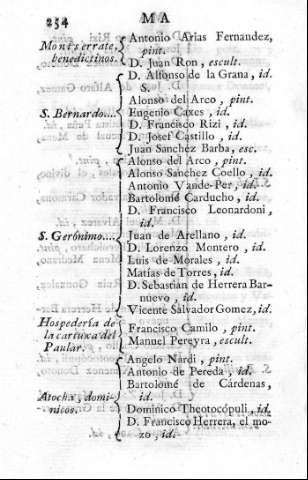 254 MA
Antonio Arias Fernandez,
Monserrate, pint.
benedictinos. D. Juan Ron, escult.
D. Alfonso de la Grana, id.
S.
Alonso del Arco, pint.
S. Bernardo.... Eugenio Caxes, id.
D. Francisco Rizi, id.
D. Josef Castillo, id.
Juan Sanchez Barba, esc.
Alonso del Arco, pint.
Alonso Sanchez Coello, id.
Antonio Vande-Per, id.
Bartolomé Carducho, id.
D. Francisco Leonardoni,
id.
S. Gerónimo.... Juan de Arellano, id.
D. Lorenzo Montero, id.
Luis de Morales, id.
Matías de Torres, id.
D. Sebastian de Herrera Bar-
nuevo, id.
Vicente Salvador Gomez, id.
Hospedería de
la cartuxa del Francisco Camilo, pint.
Paular. Manuel Pereyra, escult.
Angelo Nardi, pint.
Antonio de Pereda, id.
Bartolomé de Cárdenas,
Atocha, domi- id.
nicos. Dominico Theotocópuli, id.
D. Francisco Herrera, el mo-
zo, id.